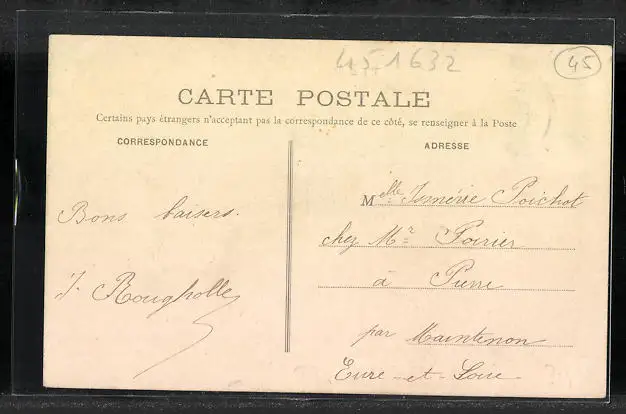 45-1632
45
CARTE POSTALE
Certains pays étrangers n'acceptant pas la correspondance de ce côté, se renseigner à la Poste
CORRESPONDANCE
ADRESSE
Bons baisers.
Melle Isménie Poichot
chez Mr Poirier
à Pierre
par Maintenon
Eure-et-Loir